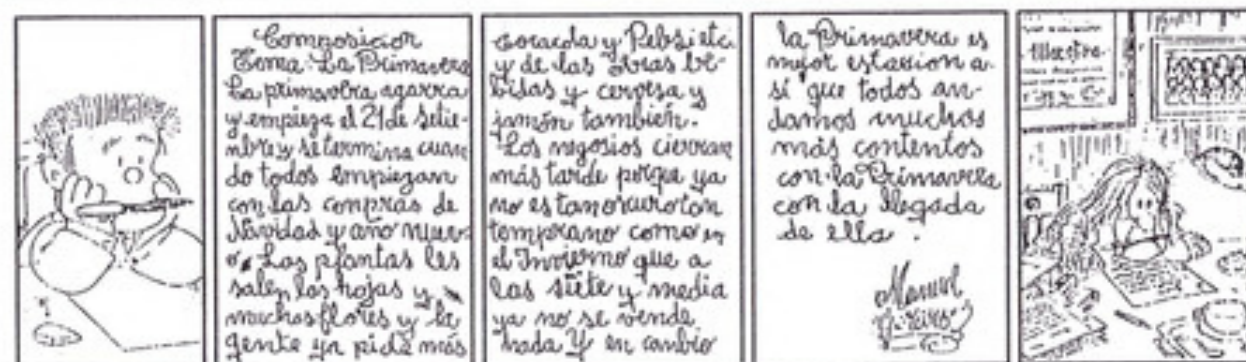 Composicion
Tema: La Primavera
La primavera agarra
y empieza el 21 de Setie-
mbre y se termina cuan
do todos empiezan
con las compras de
Navidad y año nuev-
o. Las plantas les
salen las hojas y
muchas flores y la
gente ya pide más
cocacola y Pebsi etc.
y de las otras be-
bidas y cervesa y
jimón también.
Los negosios cierran
más tarde porque ya
no es tan oscuro tan
temprano como en
el Invierno que a
las siete y media
ya no se vende
nada Y en cambio
la Primavera es
mejor estasion a-
sí que todos an-
damos muchos
más contentos
con la Primavera
con la llegada
de ella.
Manuel
Maestra